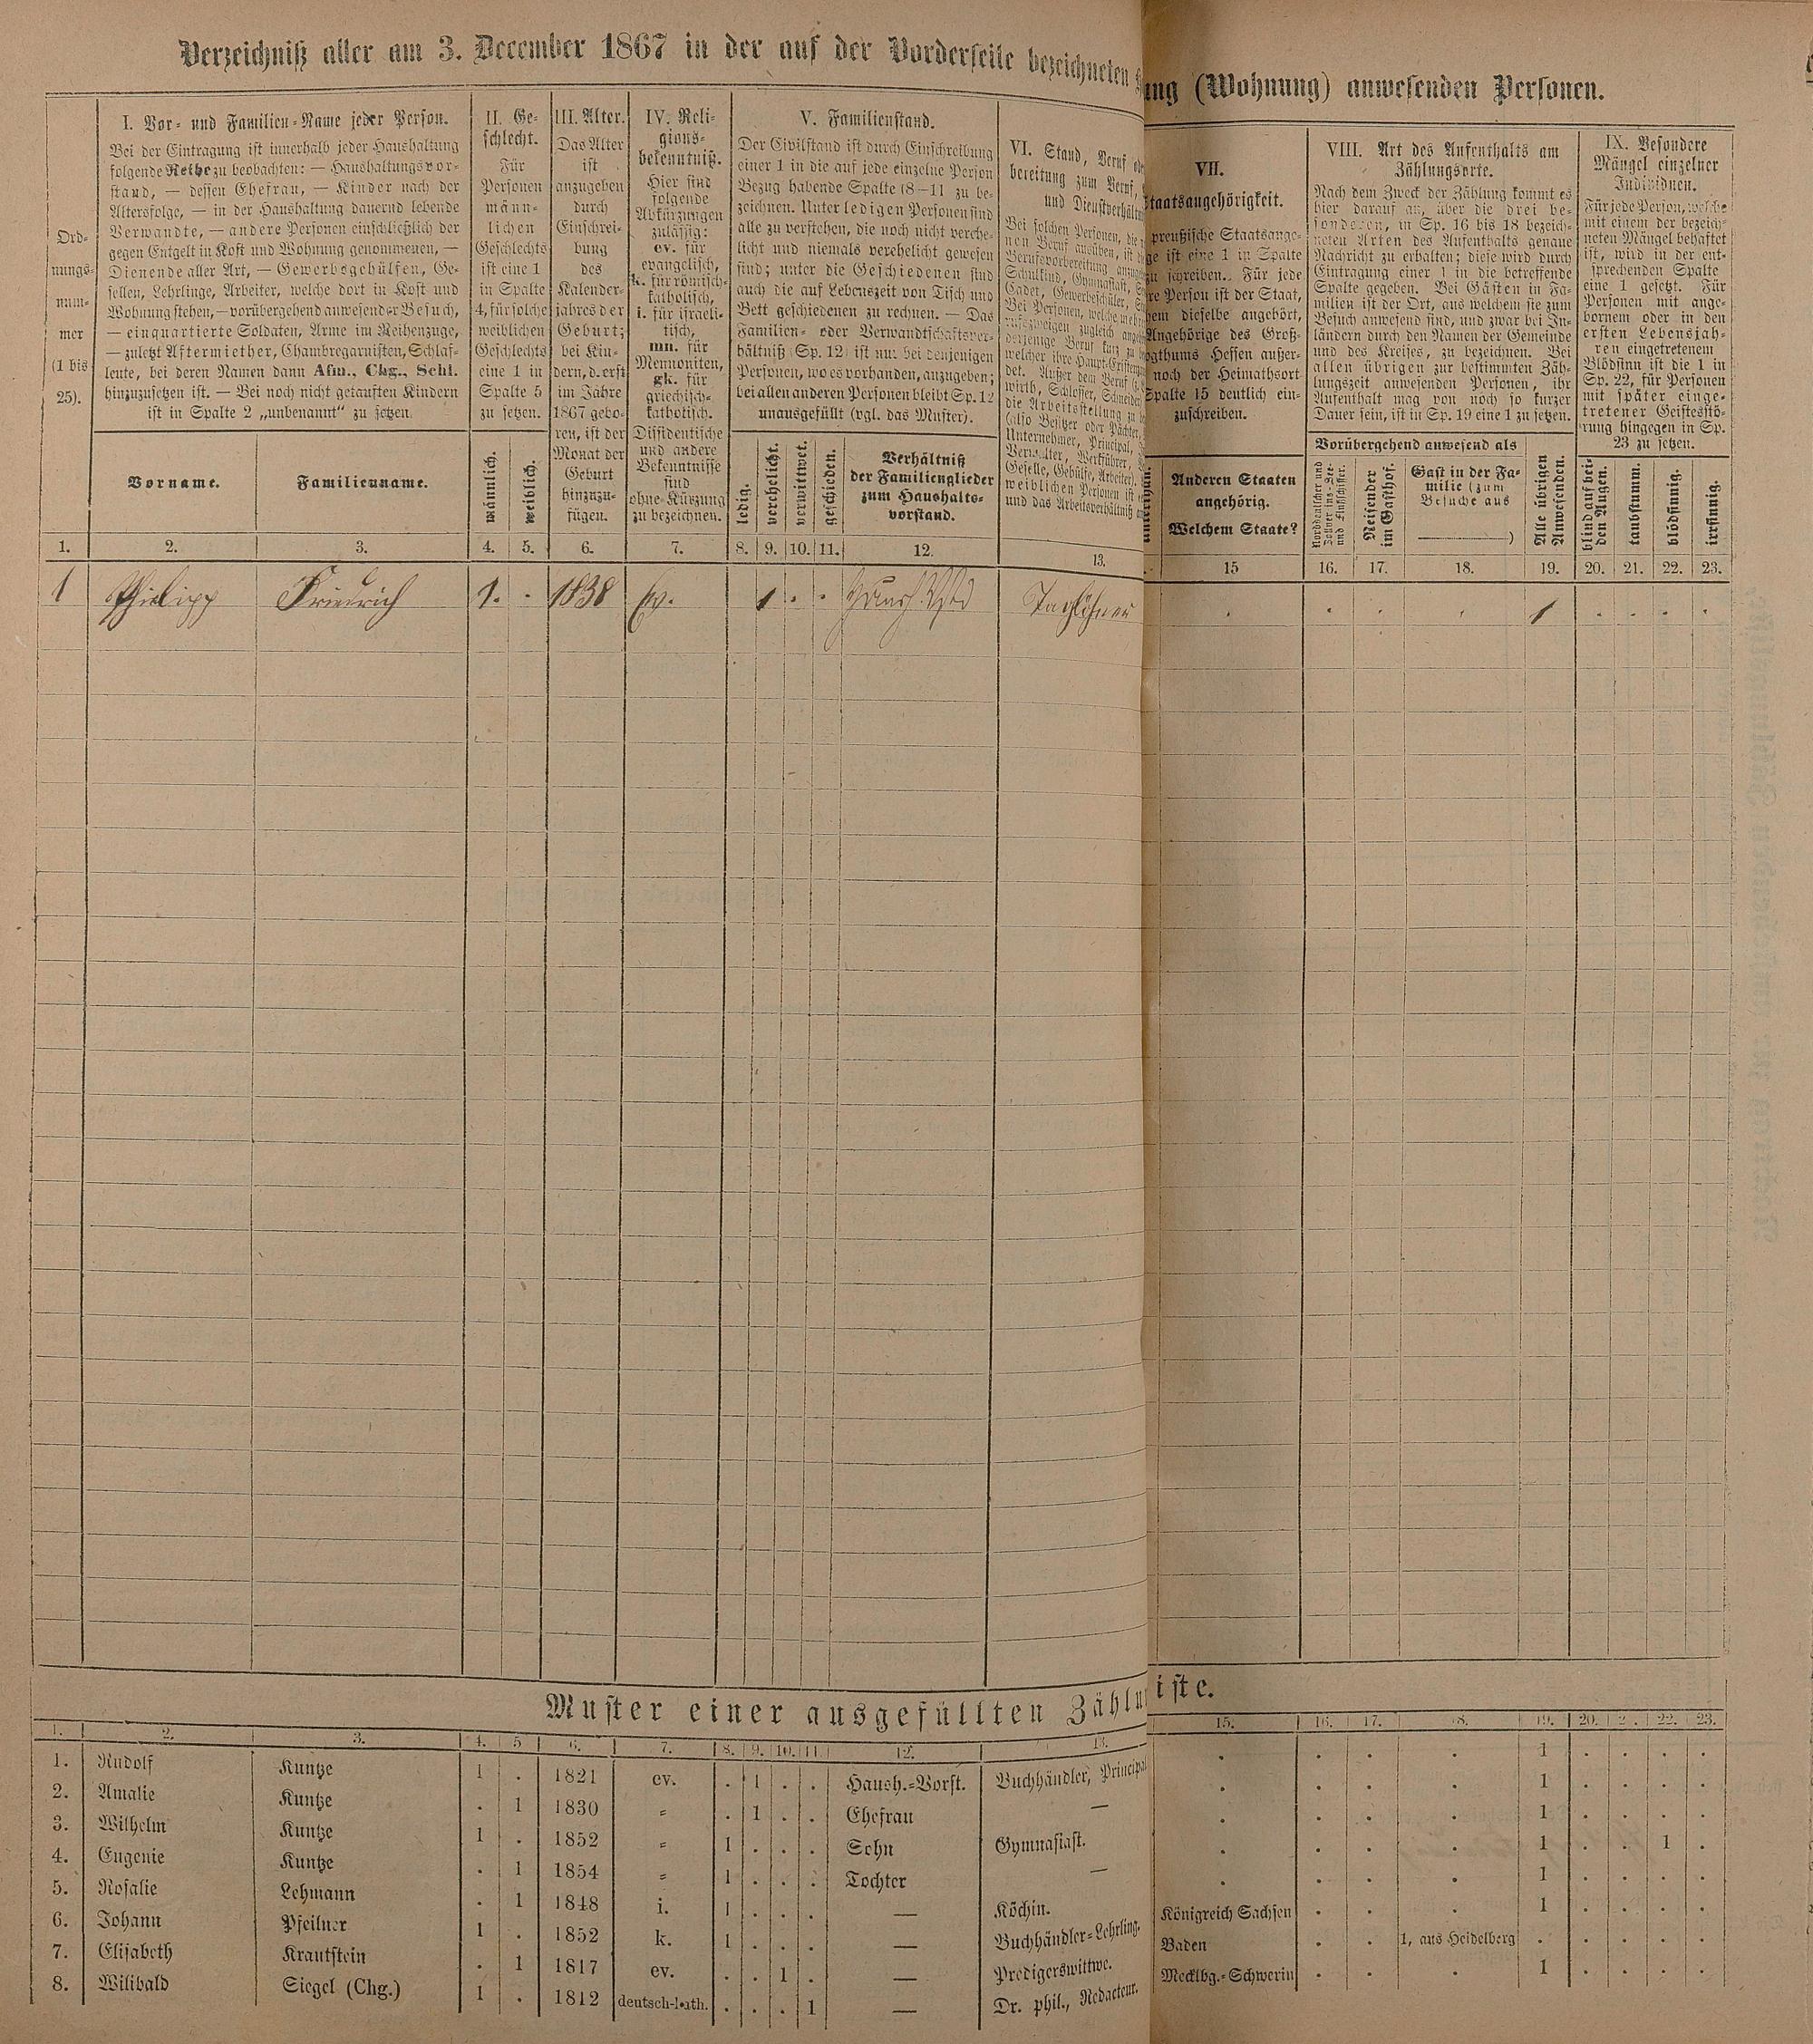 Verzeichniß aller am 3. December 1867 in der auf der Vorderseite bezeichneten
ung (Wohnung) anwesenden Personen.
Ord-
nungs-
num-
mer
(1 bis
25).
I. Vor- und Familien-Name jeder Person.
Bei der Eintragung ist innerhalb jeder Haushaltung
folgende Reihe zu beobachten: — Haushaltungsvor-
stand, — dessen Ehefrau, — Kinder nach der
Altersfolge, — in der Haushaltung dauernd lebende
Verwandte, — andere Personen einschließlich der
gegen Entgelt in Kost und Wohnung genommenen, —
Dienende aller Art, — Gewerbsgehülfen, Ge-
sellen, Lehrlinge, Arbeiter, welche dort in Kost und
Wohnung stehen, — vorübergehend anwesender Besuch,
— einquartierte Soldaten, Arme im Reihenzuge,
— zuletzt Aftermiether, Chambregarnisten, Schlaf-
leute, bei deren Namen dann Afm., Chg., Schl.
hinzuzusetzen ist. — Bei noch nicht getauften Kindern
ist in Spalte 2 „unbenannt“ zu setzen.
Vorname.
Familienname.
II. Ge-
schlecht.
Für
Personen
männ-
lichen
Geschlechts
ist eine 1
in Spalte
4, für solche
weiblichen
Geschlechts
eine 1 in
Spalte 5
zu setzen.
männlich.
weiblich.
III. Alter.
Das Alter
ist
anzugeben
durch
Einschrei-
bung
des
Kalender-
jahres der
Geburt;
bei Kin-
dern, d. erst
im Jahre
1867 gebo-
ren, ist der
Monat der
Geburt
hinzuzu-
fügen.
IV. Reli-
gions-
bekenntniß.
Hier sind
folgende
Abkürzungen
zulässig:
ev. für
evangelisch,
k. für römisch-
katholisch,
i. für israeli-
tisch,
mn. für
Mennoniten,
gk. für
griechisch-
katholisch.
Dissidentische
und andere
Bekenntnisse
sind
ohne Kürzung
zu bezeichnen.
V. Familienstand.
Der Civilstand ist durch Einschreibung
einer 1 in die auf jede einzelne Person
Bezug habende Spalte (8—11 zu be-
zeichnen. Unter ledigen Personen sind
alle zu verstehen, die noch nicht verehe-
licht und niemals verehelicht gewesen
sind; unter die Geschiedenen sind
auch die auf Lebenszeit von Tisch und
Bett geschiedenen zu rechnen. — Das
Familien- oder Verwandtschaftsver-
hältniß (Sp. 12) ist nur bei denjenigen
Personen, wo es vorhanden, anzugeben;
bei allen anderen Personen bleibt Sp. 12
unausgefüllt (vgl. das Muster).
ledig.
verehelicht.
verwittwet.
geschieden.
Verhältniß
der Familienglieder
zum Haushalts-
vorstand.
VI. Stand, Beruf
bereitung zum Beruf,
und Dienstverhältn
Bei solchen Personen, die
nen Beruf ausüben, ist
Berufsvorbereitung anzug
Schulkind, Gymnasiast,
Cadet, Gewerbeschüler,
Bei Personen, welche mehr
rufszweigen zugleich
derjenige Beruf kurz zu
welcher ihre Haupt-Existenz
det. Außer dem Beruf
wirth, Schlosser, Schneider
die Arbeitsstellung zu
(also Besitzer oder Pächter,
Unternehmer, Principal,
Verwalter, Werkführer,
Geselle, Gehülfe, Arbeiter).
weiblichen Personen ist
und das Arbeitsverhältniß
VII.
taatsangehörigkeit.
preußische Staatsange-
ge ist eine 1 in Spalte
zu schreiben. Für jede
re Person ist der Staat,
em dieselbe angehört,
Angehörige des Groß-
ogthums Hessen außer-
noch der Heimathsort
Spalte 15 deutlich ein-
zuschreiben.
Anderen Staaten
angehörig.
Welchem Staate?
VIII. Art des Aufenthalts am
Zählungsorte.
Nach dem Zweck der Zählung kommt es
hier darauf an, über die drei be-
sonderen, in Sp. 16 bis 18 bezeich-
neten Arten des Aufenthalts genaue
Nachricht zu erhalten; diese wird durch
Eintragung einer 1 in die betreffende
Spalte gegeben. Bei Gästen in Fa-
milien ist der Ort, aus welchem sie zum
Besuch anwesend sind, und zwar bei In-
ländern durch den Namen der Gemeinde
und des Kreises, zu bezeichnen. Bei
allen übrigen zur bestimmten Zäh-
lungszeit anwesenden Personen, ihr
Aufenthalt mag von noch so kurzer
Dauer sein, ist in Sp. 19 eine 1 zu setzen.
Vorübergehend anwesend als
Norddeutscher und
Zollver ins-See-
und Flußschiffer.
Reisender
im Gasthof.
Gast in der Fa-
milie (zum
Besuche aus
)
Alle übrigen
Anwesenden.
IX. Besondere
Mängel einzelner
Individuen.
Für jede Person, welche
mit einem der bezeich-
neten Mängel behaftet
ist, wird in der ent-
sprechenden Spalte
eine 1 gesetzt. Für
Personen mit ange-
bornem oder in den
ersten Lebensjah-
ren eingetretenem
Blödsinn ist die 1 in
Sp. 22, für Personen
mit später einge-
tretener Geistesstö-
rung hingegen in Sp.
23 zu setzen.
blind auf bei-
den Augen.
taubstumm.
blödsinnig.
irrsinnig.
1. 2. 3. 4. 5. 6. 7. 8. 9. 10. 11. 12. 13. 15 16. 17. 18. 19. 20. 21. 22. 23.
1 Philipp Friedrich 1. . 1838 Ev. 1 . . Haush. Vstd Taglöhner . . . . 1 . . . .
Muster einer ausgefüllten Zählu
iste.
1. 2. 3. 4. 5 6. 7. 8. 9. 10. 11. 12. 13. 15. 16. 17. 18. 19. 20. 21. 22. 23.
1. Rudolf Kuntze 1 . 1821 ev. . 1 . . Haush.-Vorst. Buchhändler, Principal . . . . 1 . . . .
2. Amalie Kuntze . 1 1830 „ . 1 . . Ehefrau — . . . . 1 . . . .
3. Wilhelm Kuntze 1 . 1852 „ 1 . . . Sohn Gymnasiast. . . . . 1 . . . .
4. Eugenie Kuntze . 1 1854 „ 1 . . . Tochter — . . . . 1 . . 1 .
5. Rosalie Lehmann . 1 1848 i. 1 . . . — Köchin. . . . . 1 . . . .
6. Johann Pfeilner 1 . 1852 k. 1 . . . — Buchhändler-Lehrling. Königreich Sachsen . . . 1 . . . .
7. Elisabeth Krautstein . 1 1817 ev. . . 1 . — Predigerswittwe. Baden . . 1, aus Heidelberg . . . . .
8. Wilibald Siegel (Chg.) 1 . 1812 deutsch-kath. . . . 1 — Dr. phil., Redacteur. Mecklbg.-Schwerin . . . 1 . . . .